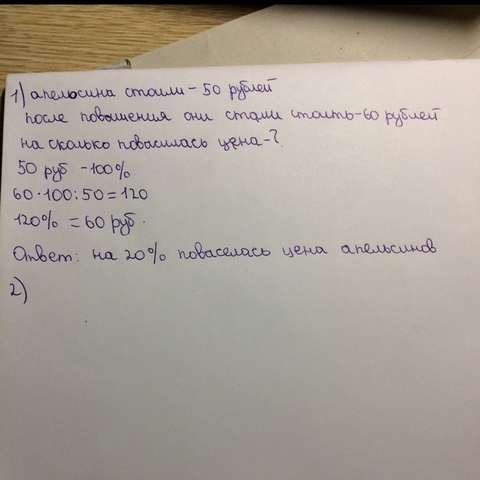 1) апельсина стоили - 50 рублей
после повышения они стали стоить - 60 рублей
на сколько повасилась цена - ?
50 руб - 100%
60 · 100 : 50 = 120
120% = 60 руб.
Ответ: на 20% поваселась цена апельсинов
2)